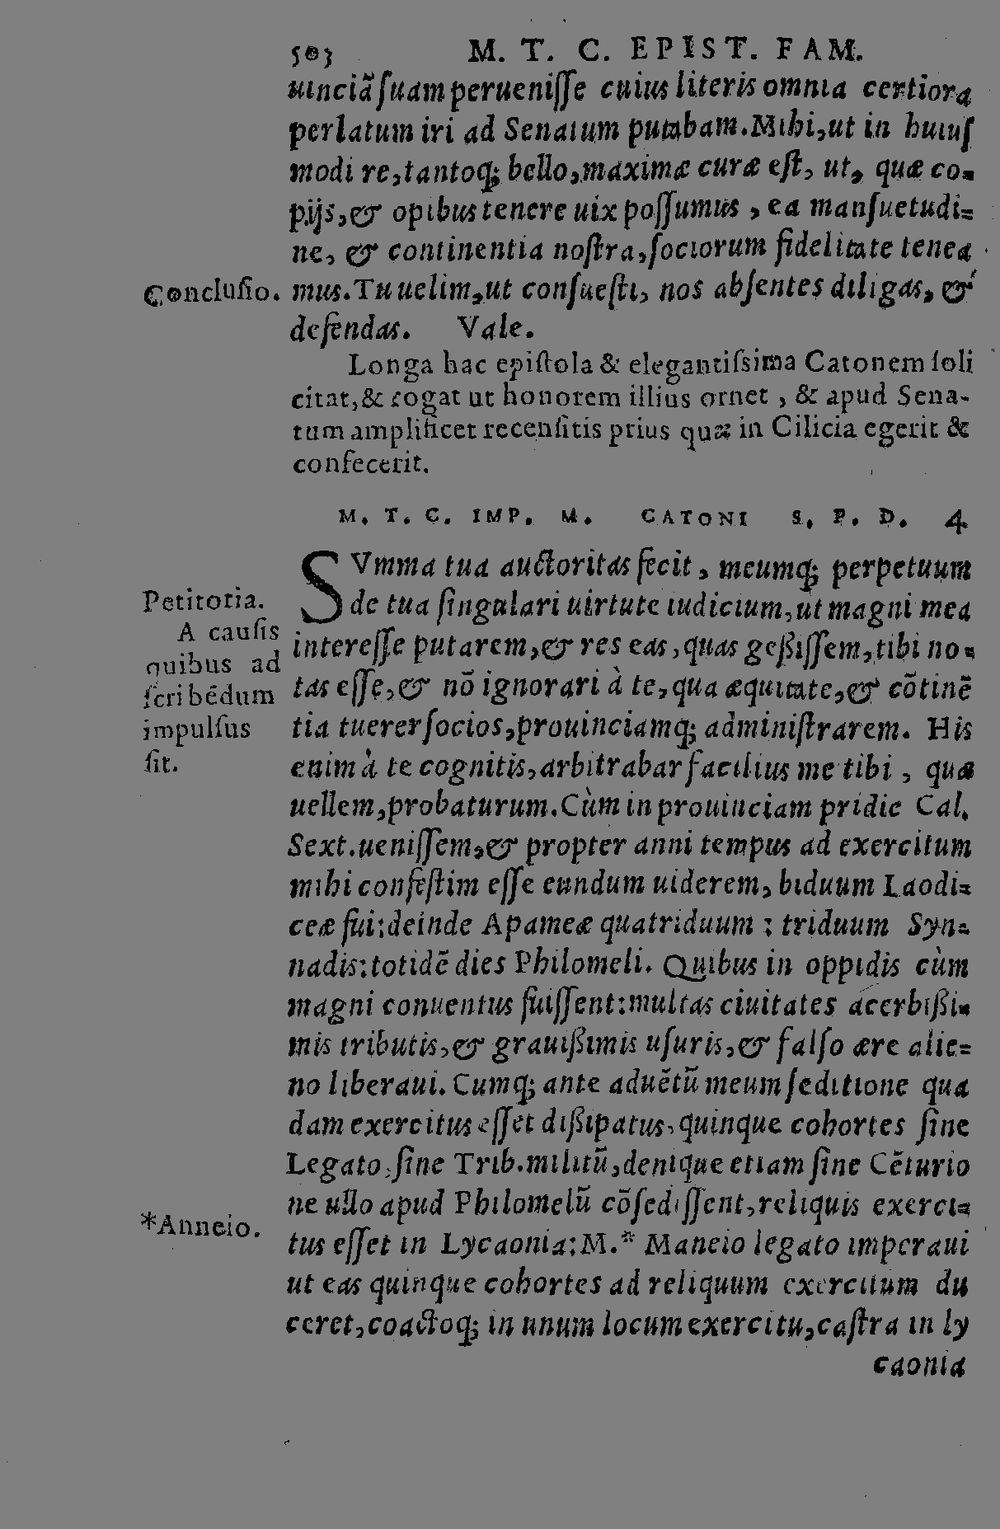 503 M. T. C. EPIST. FAM.
uinciã ſuam perueniſſe cuius literis omnia certiora
perlatum iri ad Senatum putabam. Mihi, ut in huiuſ
modi re, tantoq; bello, maximæ curæ eſt, ut, quæ co-
pijs, & opibus tenere uix poſſumus, ea manſuetudi-
ne, & continentia noſtra, ſociorum fidelitate tenea
Concluſio.
mus. Tu uelim, ut conſueſti, nos abſentes diligas, &
defendas. Vale.
Longa hac epiſtola & elegantiſsima Catonem ſoli
citat, & rogat ut honorem illius ornet, & apud Sena-
tum amplificet recenſitis prius quæ in Cilicia egerit &
confecerit.
M. T. C. IMP. M. CATONI S. P. D. 4
SVmma tua auctoritas fecit, meumq; perpetuum
de tua ſingulari uirtute iudicium, ut magni mea
intereſſe putarem, & res eas, quas geßiſſem, tibi no-
tas eſſe, & nõ ignorari à te, qua æquitate, & cõtinẽ
tia tuerer ſocios, prouinciamq; adminiſtrarem. His
enim à te cognitis, arbitrabar facilius me tibi, quæ
uellem, probaturum. Cùm in prouinciam pridie Cal.
Sext. ueniſſem, & propter anni tempus ad exercitum
mihi confeſtim eſſe eundum uiderem, biduum Laodi-
ceæ fui: deinde Apameæ quatriduum: triduum Syn-
nadis: totidẽ dies Philomeli. Quibus in oppidis cùm
magni conuentus fuiſſent: multas ciuitates acerbißi-
mis tributis, & grauißimis uſuris, & falſo ære alie-
no liberaui. Cumq; ante aduẽtũ meum ſeditione qua
dam exercitus eſſet dißipatus, quinque cohortes ſine
Legato, ſine Trib. militũ, denique etiam ſine Cẽturio
ne ullo apud Philomelũ cõſediſſent, reliquis exerci-
tus eſſet in Lycaonia: M.* Maneio legato imperaui
ut eas quinque cohortes ad reliquum exercitum du
ceret, coactoq; in unum locum exercitu, caſtra in ly
caonia
Petitoria.
A cauſis
quibus ad
ſcribẽdum
impulſus
ſit.
*Anneio.